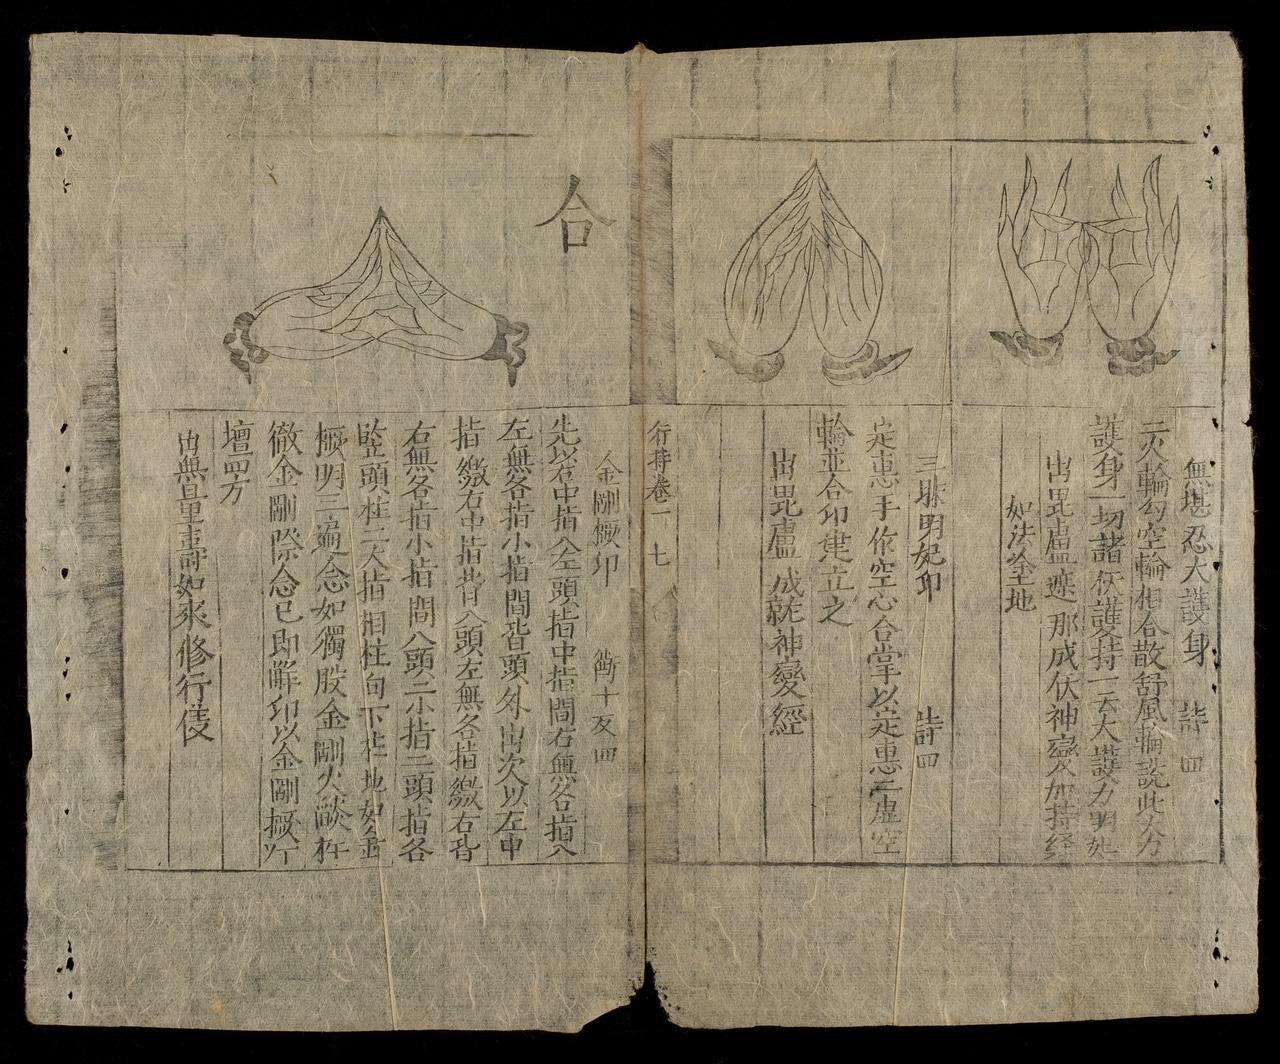 無堪忍大護身　詩四
二火輪勾空輪相合散舒風輪說此大力
護身一切諸仸護持一云大護力明妃
出毘盧遮那成仸神變加持經
如法塗地
三昧明妃印　詩四
定惠手作空心合掌以定惠二虛空
輪並合印建立之
出毘盧成就神變經
行持卷一　七
合
金剛橛印　斷十友四
先以右中指入左頭指中指間右無名指入
左無名指小指間皆頭外出次以左中
指繳右中指背入頭左無名指繳右背
右無名指小指間入頭二小指二頭指各
竪頭柱二大指相柱向下柱地如釘
橛明三遍念如獨股金剛火談杵
徹金剛際念已即觧印以金剛橛
壇四方
出無量壽如來修行儀